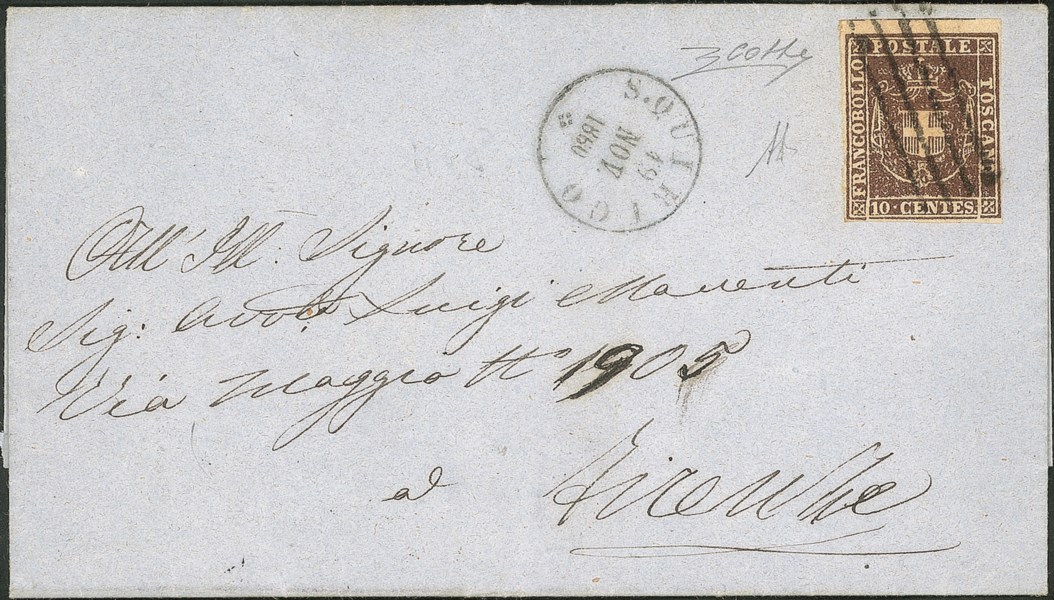 S. QUIRICO
19
NOV
1860
FRANCOBOLLO
POSTALE
TOSCANO
10 · CENTES
All' Ill. Signore
Sig: Avv. Luigi
Via Maggio N° 1905
Firenze